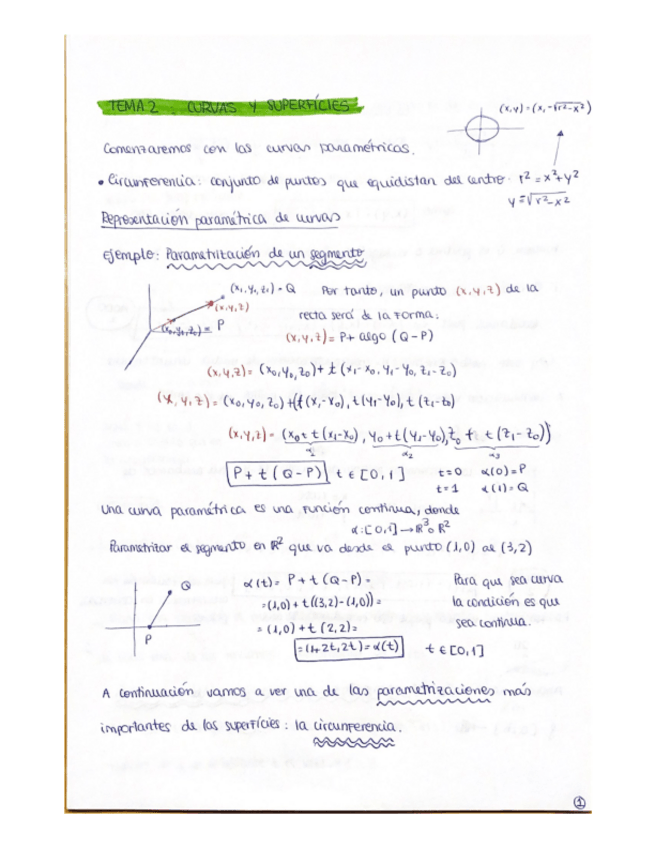 TEMA 2 . CURVAS Y SUPERFÍCIES
(x,y) = (x, -√r²-x²)
Comenzaremos con las curvas paramétricas.
• Circunferencia: conjunto de puntos que equidistan del centro. r² = x²+y²
y = √r²-x²
Representación paramétrica de curvas
Ejemplo: Parametrización de un segmento
(x₁, y₁, z₁) = Q
(x,y,z)
(x₀,y₀,z₀) = P
Por tanto, un punto (x,y,z) de la
recta será de la forma:
(x,y,z) = P + algo (Q-P)
(x,y,z) = (x₀,y₀,z₀) + t (x₁-x₀, y₁-y₀, z₁-z₀)
(x,y,z) = (x₀,y₀,z₀) + (t(x₁-x₀), t(y₁-y₀), t(z₁-z₀)
(x,y,z) = (x₀ + t(x₁-x₀), y₀ + t(y₁-y₀), z₀ + t(z₁-z₀))
α₂ α₃
P + t (Q-P) t ∈ [0,1]
t=0 α(0) = P
t=1 α(1) = Q
Una curva paramétrica es una función continua, donde
α: [0,1] → R³ o R²
Parametrizar el segmento en R² que va desde el punto (1,0) al (3,2)
Q
P
α(t) = P + t (Q-P) =
= (1,0) + t ((3,2)-(1,0)) =
= (1,0) + t (2,2) =
= (1+2t, 2t) = α(t)
t ∈ [0,1]
Para que sea curva
la condición es que
sea continua.
A continuación vamos a ver una de las parametrizaciones más
importantes de las superfícies: la circunferencia.
1